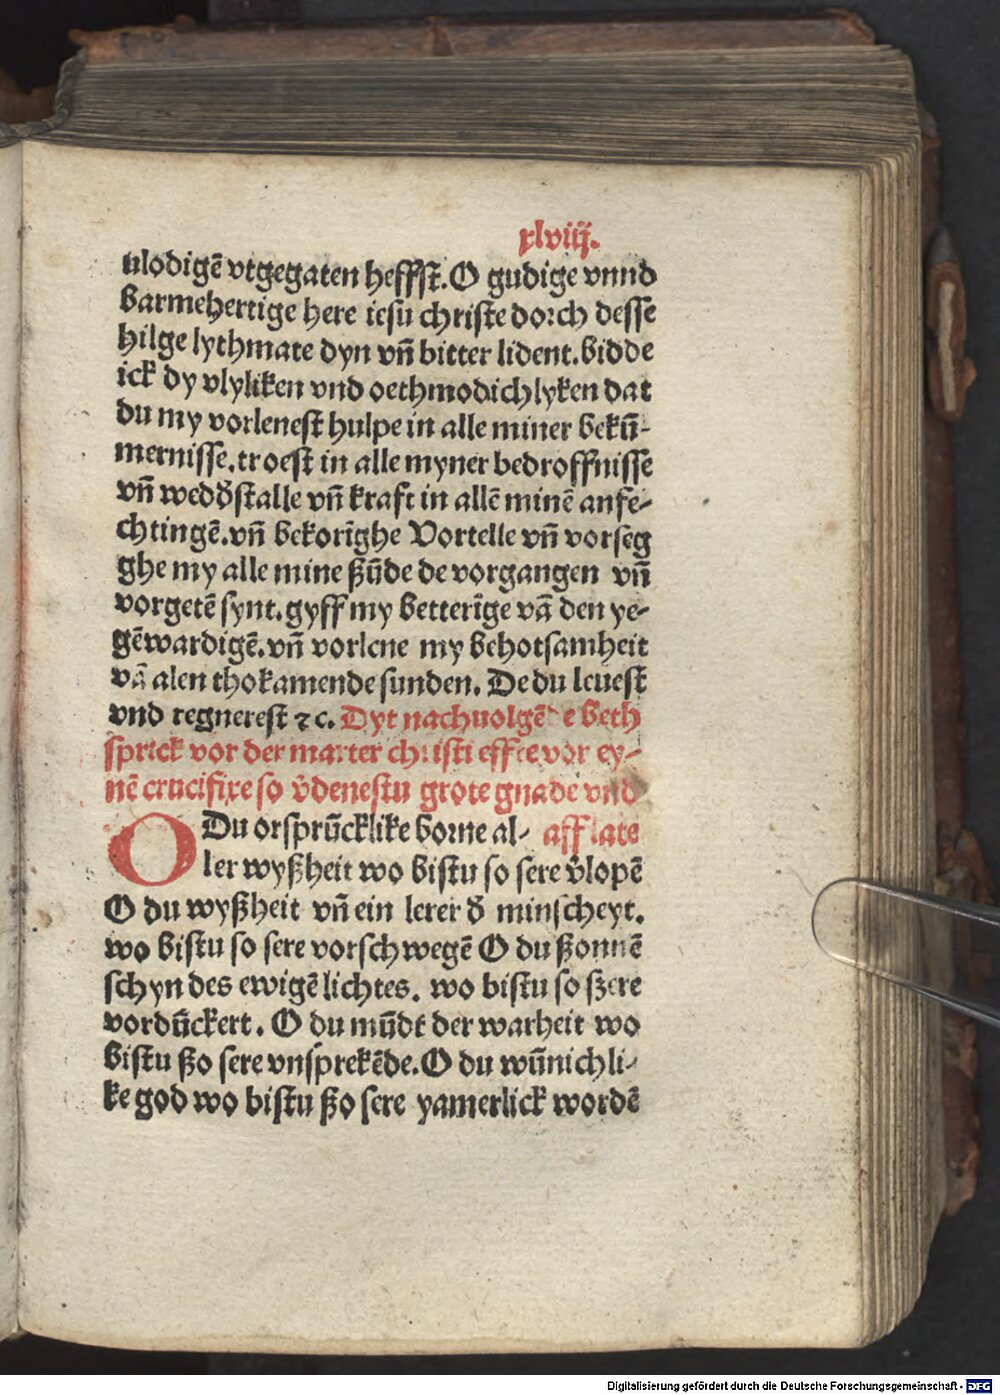 xlviij.
mlodigē vtgegaten heffst. O gudige vnnd
barmehertige here iesu christe dorch desse
hilge lythmate dyn vn̄ bitter lident. bidde
ick dy vlyliken vnd oethmodichlyken dat
du my vorlenest hulpe in alle miner bekū-
mernisse. troest in alle myner bedroffnisse
vn̄ wedd̕stalle vn̄ kraft in allē minē anfe-
chtingē. vn̄ bekorīghe Vortelle vn̄ vorseg
ghe my alle mine ßūde de vorgangen vn̄
vorgetē synt. gyff my betterīge vā den ye-
gēwardigē. vn̄ vorlene my behotsamheit
vā alen thokamende sunden. De du leuest
vnd regnerest ⁊c. Dyt nachuolgēde beth
sprick vor der marter christi effte vor ey-
nē crucifixe so v̄denestu grote gnade vnd
afflate
O Du orsprūcklike borne al-
ler wyßheit wo bistu so sere v̄lopē
O du wyßheit vn̄ ein lerer d̕ minscheyt.
wo bistu so sere vorschwegē O du ßonnē
schyn des ewigē lichtes. wo bistu so szere
vordūckert. O du mūdt der warheit wo
bistu ßo sere vnsprekēde. O du wūnichli-
ke god wo bistu ßo sere yamerlick wordē
Digitalisierung gefördert durch die Deutsche Forschungsgemeinschaft - DFG